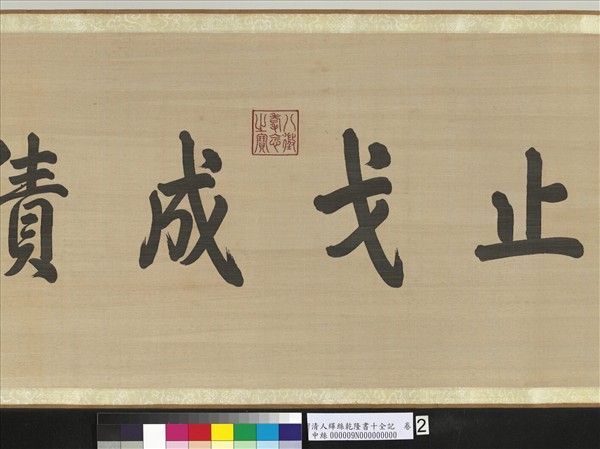 止戈成
八徵耄念之寶
清人緙絲乾隆書十全記 卷
中絲 000009N000000000
2